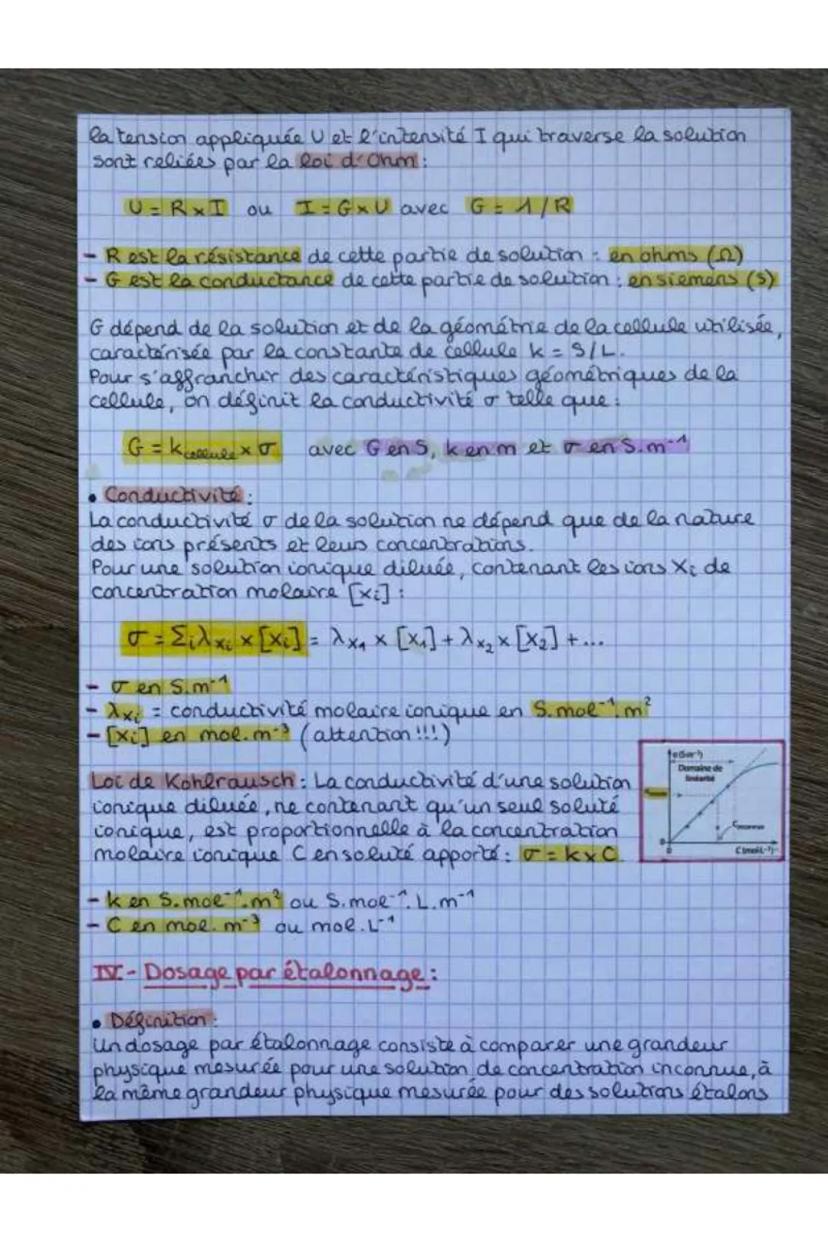 la tension appliquée U et l'intensité I qui traverse la solution
sont reliées par la loi d'Ohm :
U = R x I ou I = G x U avec G = 1/R
- R est la résistance de cette partie de solution : en ohms (Ω)
- G est la conductance de cette partie de solution : en siemens (S)
G dépend de la solution et de la géométrie de la cellule utilisée,
caractérisée par la constante de cellule k = S/L.
Pour s'affranchir des caractéristiques géométriques de la
cellule, on définit la conductivité σ telle que :
G = k cellule x σ avec G en S, k en m et σ en S.m⁻¹
• Conductivité :
La conductivité σ de la solution ne dépend que de la nature
des ions présents et leurs concentrations.
Pour une solution ionique diluée, contenant les ions Xi de
concentration molaire [Xi] :
σ = Σi λXi x [Xi] = λX₁ x [X₁] + λX₂ x [X₂] + ...
- σ en S.m⁻¹
- λXi = conductivité molaire ionique en S.mol⁻¹.m²
- [Xi] en mol.m⁻³ (attention !!!)
Loi de Kohlrausch : La conductivité d'une solution
ionique diluée, ne contenant qu'un seul soluté
ionique, est proportionnelle à la concentration
molaire ionique C en soluté apporté : σ = k x C
σ (S·m⁻¹)
Domaine de
linéarité
0
0
C (mol·L⁻¹)
- k en S.mol⁻¹.m² ou S.mol⁻¹.L.m⁻¹
- C en mol.m⁻³ ou mol.L⁻¹
IV - Dosage par étalonnage :
• Définition :
Un dosage par étalonnage consiste à comparer une grandeur
physique mesurée pour une solution de concentration inconnue, à
la même grandeur physique mesurée pour des solutions étalons